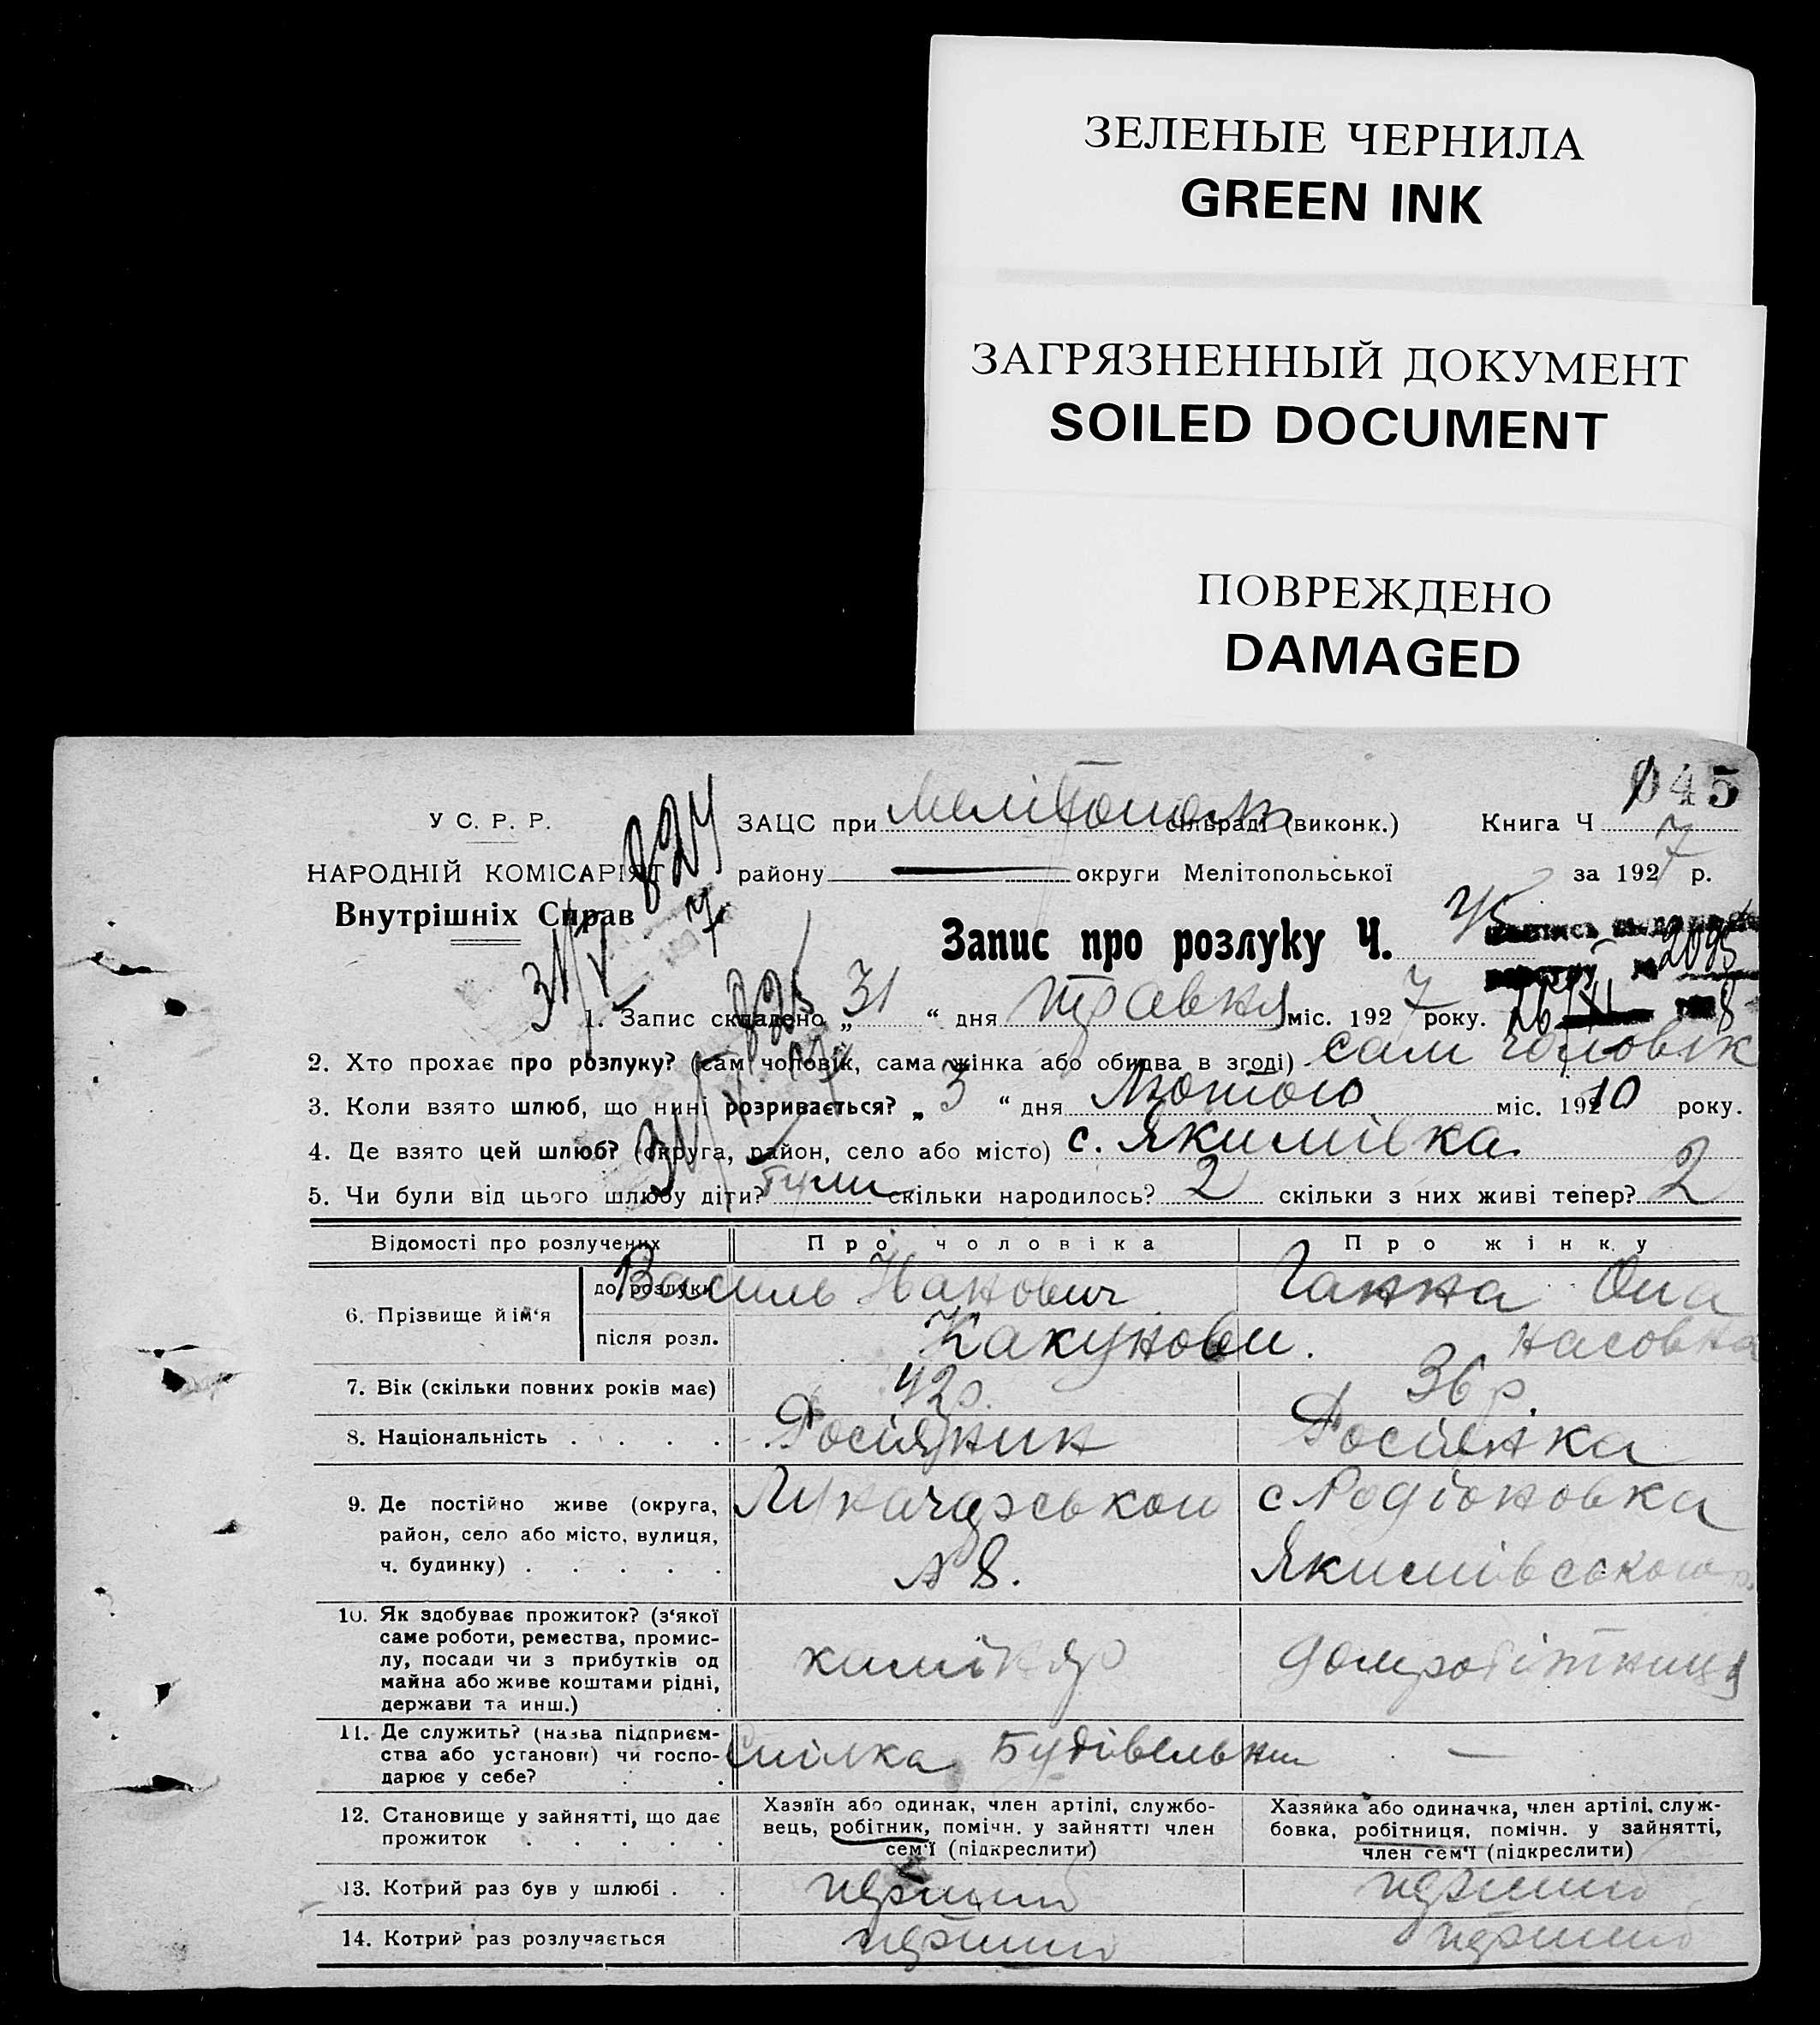 ЗЕЛЕНЫЕ ЧЕРНИЛА
GREEN INK
ЗАГРЯЗНЕННЫЙ ДОКУМЕНТ
SOILED DOCUMENT
ПОВРЕЖДЕНО
DAMAGED
045
У С. Р. Р.
НАРОДНІЙ КОМІСАРІЯТ
Внутрішніх Справ
824
31/V 7
ЗАЦС при Мелітополь сільраді (виконк.) Книга Ч
району — округи Мелітопольської за 1927 р.
Запис про розлуку Ч.
2095
1. Запис складено „31“ дня травня міс. 1927 року.
2. Хто прохає про розлуку? (сам чоловік, сама жінка або обидва в згоді) сам чоловік
3. Коли взято шлюб, що нині розривається? „3“ дня Лютого міс. 19210 року.
4. Де взято цей шлюб? (округа, район, село або місто) с. Якимівка
5. Чи були від цього шлюбу діти? Були скільки народилось? 2 скільки з них живі тепер? 2
Відомості про розлучених Про чоловіка Про жінку
6. Прізвище й ім'я до розлуки Василь Іванович Ганна Опа
після розл. Какунови. насовна
7. Вік (скільки повних років має) 42р. 36 р.
8. Національність . . . . Росіянин Росіянка
9. Де постійно живе (округа, Луначарського с Родіоновка
район, село або місто, вулиця,
ч. будинку) . . . . . № 8. Якимівського
10. Як здобуває прожиток? (з'якої
саме роботи, ремества, промис-
лу, посади чи з прибутків од каміняр домробітниця
майна або живе коштами рідні,
держави та инш.) .
11. Де служить? (назва підприєм-
ства або установи) чи госпо- Спілка Будівельни —
дарює у себе? . .
12. Становище у зайнятті, що дає
прожиток . . . . .
Хазяїн або одинак, член артілі, службо-
вець, робітник, помічн. у зайнятті член
сем'ї (підкреслити)
Хазяйка або одиначка, член артілі, служ-
бовка, робітниця, помічн. у зайнятті,
член сем'ї (підкреслити)
13. Котрий раз був у шлюбі . . перший перший
14. Котрий раз розлучається перший перший